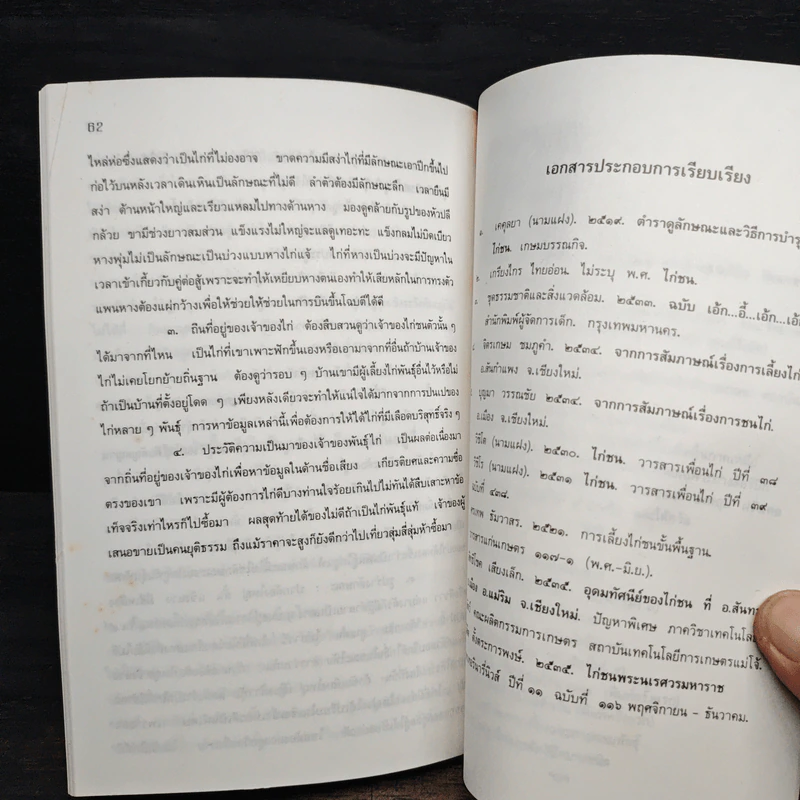 62
ไหล่ห่อซึ่งแสดงว่าเป็นไก่ที่ไม่องอาจ ขาดความมีสง่าไก่ที่มีลักษณะเอาปีกขึ้นไป
ก่อไว้บนหลังเวลาเดินเห็นเป็นลักษณะที่ไม่ดี ลำตัวต้องมีลักษณะลึก เวลายืนมี
สง่า ด้านหน้าใหญ่และเรียวแหลมไปทางด้านหาง มองดูคล้ายกับรูปของหัวปลี
กล้วย ขามีช่วงยาวสมส่วน แข็งแรงไม่ใหญ่จะแลดูเทอะทะ แข้งกลมไม่บิดเบี้ยว
หางพุ่มไม่เป็นลักษณะเป็นบ่วงแบบหางไก่แจ้ ไก่ที่หางเป็นบ่วงจะมีปัญหาใน
เวลาเข้าเกี้ยวกับคู่ต่อสู้เพราะจะทำให้เหยียบหางตนเองทำให้เสียหลักในการทรงตัว
แพนหางต้องแผ่กว้างเพื่อให้ช่วยให้ช่วยในการบินขึ้นโฉบตีได้ดี
๓. ถิ่นที่อยู่ของเจ้าของไก่ ต้องสืบสวนดูว่าเจ้าของไก่ชนตัวนั้น ๆ
ได้มาจากที่ไหน เป็นไก่ที่เขาเพาะฟักขึ้นเองหรือเอามาจากที่อื่นถ้าบ้านเจ้าของ
ไก่ไม่เคยโยกย้ายถิ่นฐาน ต้องดูว่ารอบ ๆ บ้านเขามีผู้เลี้ยงไก่พันธุ์อื่นไว้หรือไม่
ถ้าเป็นบ้านที่ตั้งอยู่โดด ๆ เพียงหลังเดียวจะทำให้แน่ใจได้มากจากการปนเปของ
ไก่หลาย ๆ พันธุ์ การหาข้อมูลเหล่านี้เพื่อต้องการให้ได้ไก่ที่มีเลือดบริสุทธิ์จริง ๆ
๔. ประวัติความเป็นมาของเจ้าของพันธุ์ไก่ เป็นผลต่อเนื่องมา
จากถิ่นที่อยู่ของเจ้าของไก่เพื่อหาข้อมูลในด้านชื่อเสียง เกียรติยศและความซื่อ
ตรงของเขา เพราะมีผู้ต้องการไก่ดีบางท่านใจร้อยเกินไปไม่ทันได้สืบเสาะหาข้อ
เท็จจริงเท่าไหร่ก็ไปซื้อมา ผลสุดท้ายได้ของไม่ดีถ้าเป็นไก่พันธุ์แท้ เจ้าของผู้
เสนอขายเป็นคนยุติธรรม ถึงแม้ราคาจะสูงก็ยังดีกว่าไปเที่ยวสุ่มสี่สุ่มห้าซื้อมา
เอกสารประกอบการเรียบเรียง
เคคุลยา (นามแฝง). ๒๕๑๙. ตำราดูลักษณะและวิธีการบำรุง
ไก่ชน. เกษมบรรณกิจ.
เกรียงไกร ไทยอ่อน. ไม่ระบุ พ.ศ. ไก่ชน.
ชุดธรรมชาติและสิ่งแวดล้อม. ๒๕๓๓. ฉบับ เอ้ก...อี้...เอ้ก...เอ้
สำนักพิมพ์ผู้จัดการเด็ก. กรุงเทพมหานคร.
ฉัตรเกษม ชมภูคำ. ๒๕๓๔. จากการสัมภาษณ์เรื่องการเลี้ยงไก่
อ.สันกำแพง จ.เชียงใหม่.
บุญมา วรรณชัย ๒๕๓๔. จากการสัมภาษณ์เรื่องการชนไก่.
อ.เมือง จ.เชียงใหม่.
(นามแฝง). ๒๕๓๐. ไก่ชน. วารสารเพื่อนไก่ ปีที่ ๓๘
(นามแฝง). ๒๕๓๑ ไก่ชน. วารสารเพื่อนไก่ ปีที่ ๓๙
ฉบับที่ ๔๓๘.
ธัมวาสร. ๒๕๒๑. การเลี้ยงไก่ชนขั้นพื้นฐาน.
สารแก่นเกษตร ๑๑๗-๑ (พ.ศ.-มิ.ย.).
เสียงเล็ก. ๒๕๓๕. อุดมทัศนีย์ของไก่ชน ที่ อ.สันทราย
อ.แม่ริม จ.เชียงใหม่. ปัญหาพิเศษ ภาควิชาเทคโนโล
คณะผลิตกรรมการเกษตร สถาบันเทคโนโลยีการเกษตรแม่โจ้.
ตั้งตระการพงษ์. ๒๕๓๕. ไก่ชนพระนเรศวรมหาราช
ปีที่ ๑๑ ฉบับที่ ๑๑๖ พฤศจิกายน - ธันวาคม.